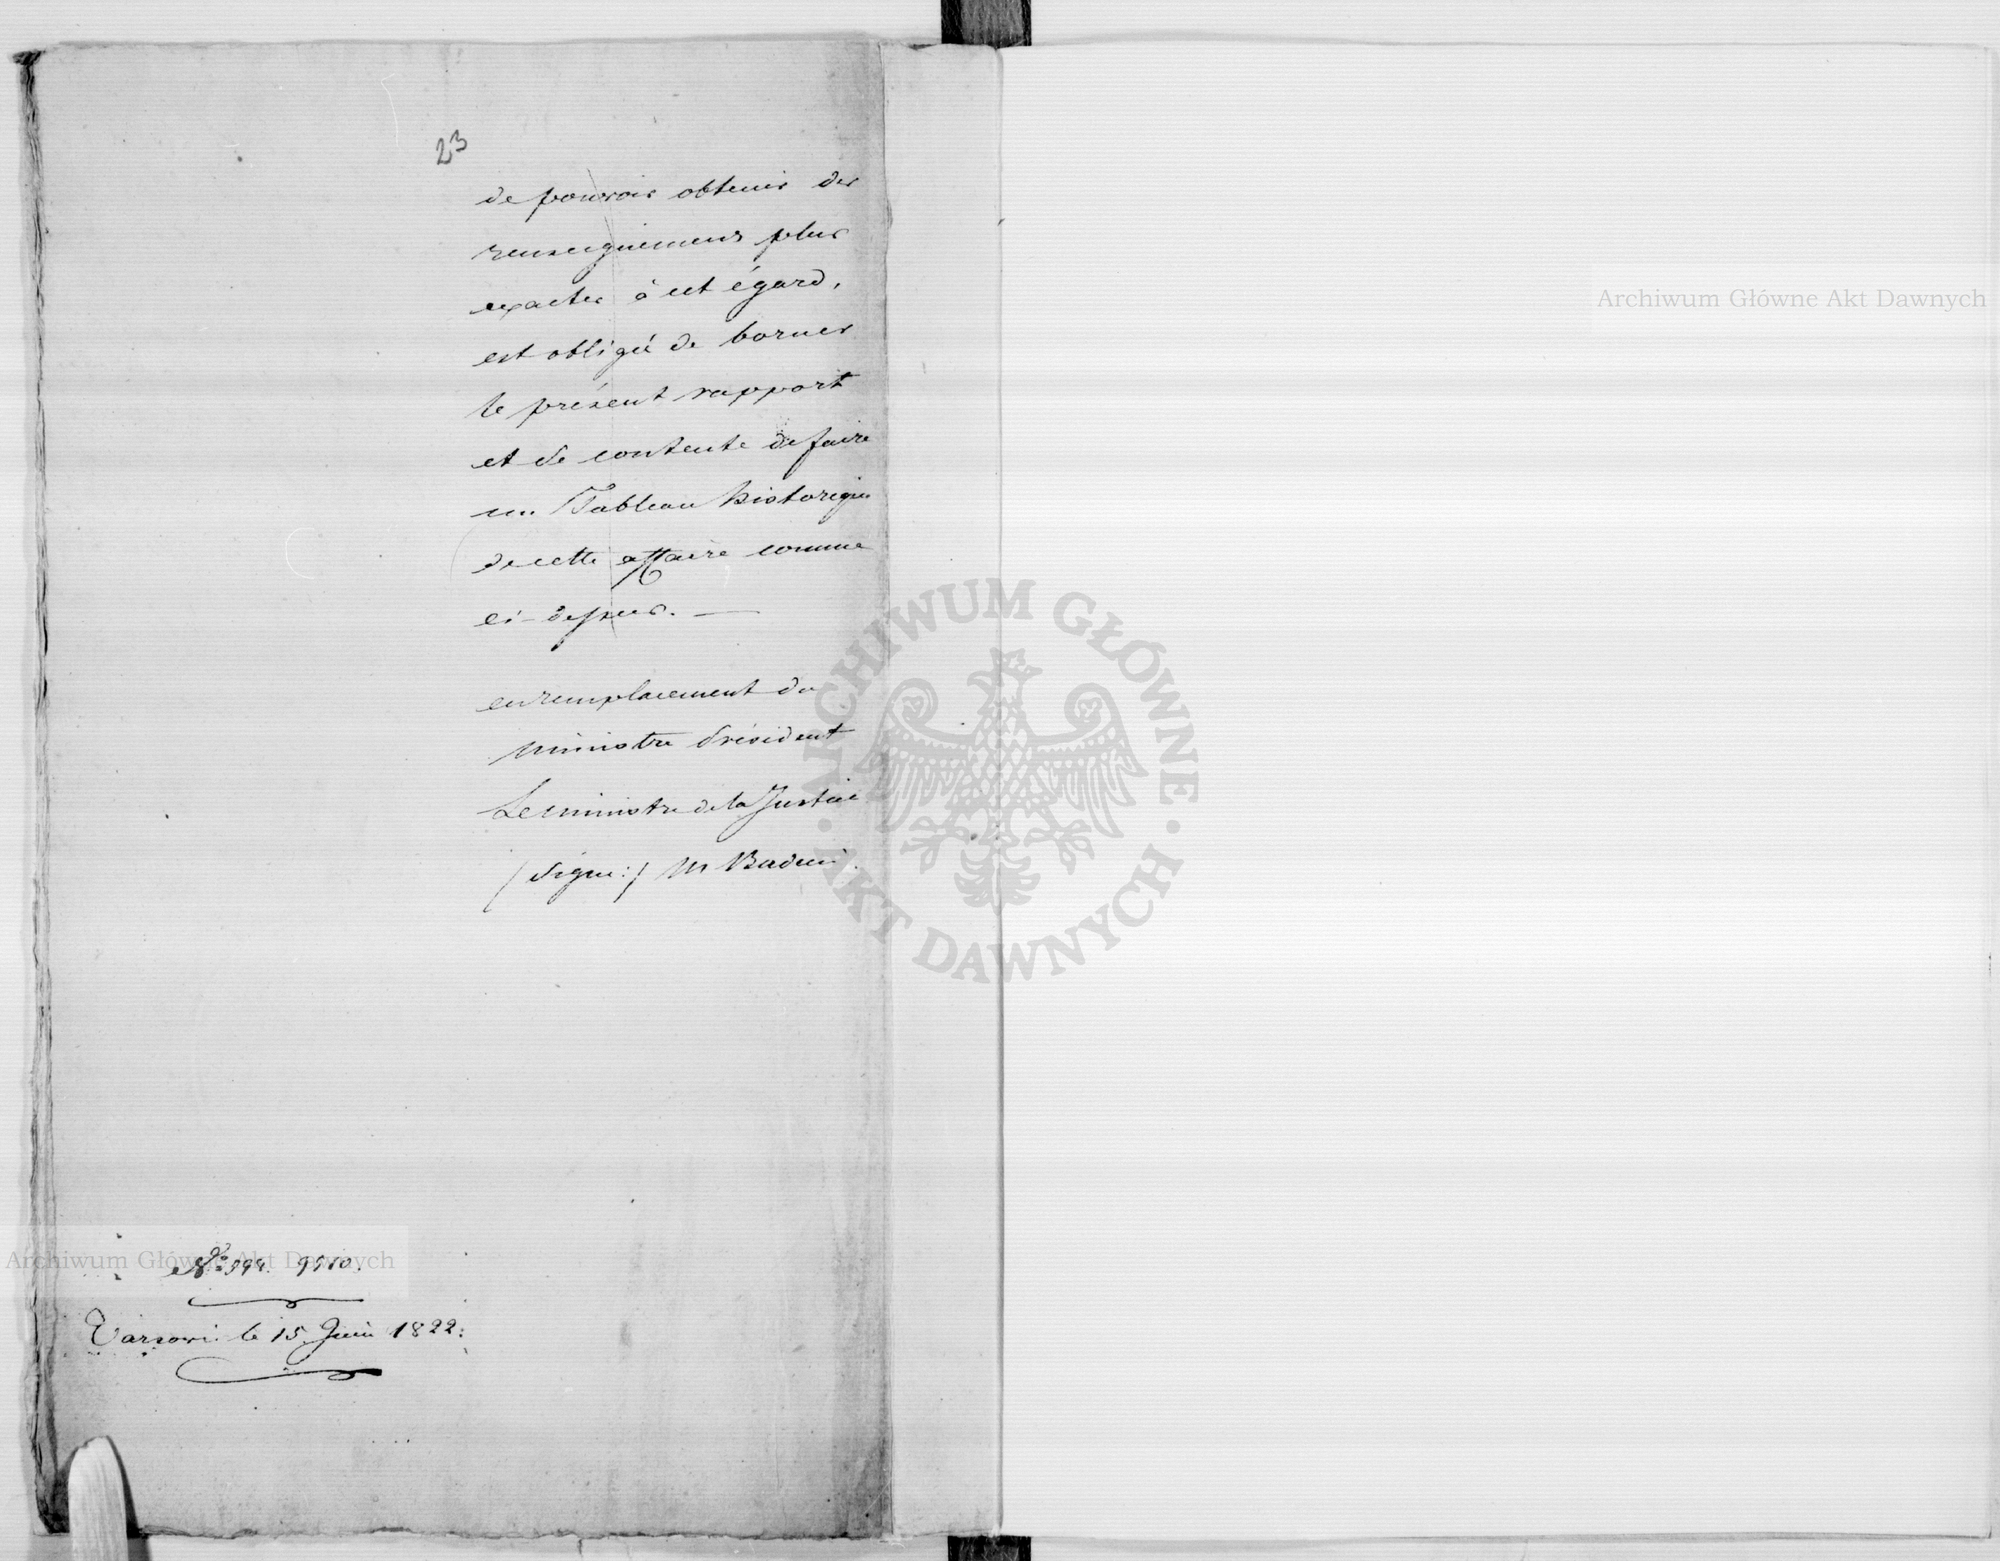 23
de pouvoir obtenir des
renseignemens plus
exactes à cet égard,
est obligé de borner
le présent rapport
et se contente de faire
un Tableau historique
de cette affaire comme
ci-dessus. —
en remplacement du
ministre Président
Le ministre de la Justice
/signé:/ M Badeni.
Archiwum Główne Akt Dawnych
ARCHIWUM GŁÓWNE AKT DAWNYCH
Archiwum Główne Akt Dawnych
No 9510.
Varsovie le 15 Juin 1822.